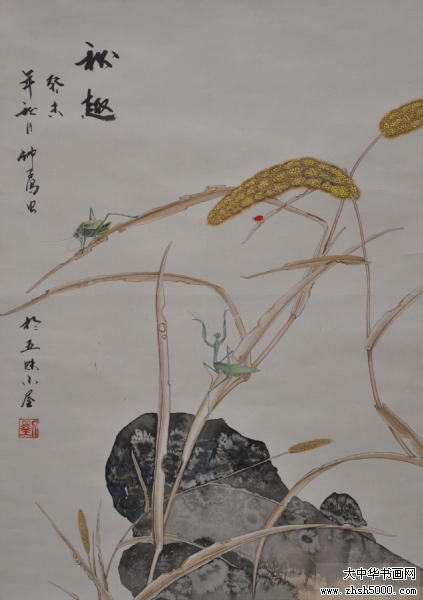 秋趣
癸未
年秋月
於五味小屋
大中华书画网
www.zhsh5000.com